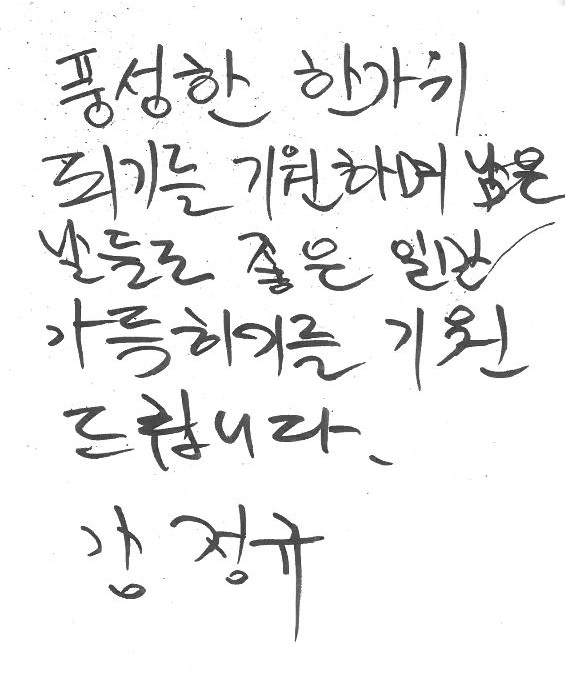 풍성한 한가위
되기를 기원하며 남은
날들도 좋은 일만
가득하기를 기원
드립니다.
강정규